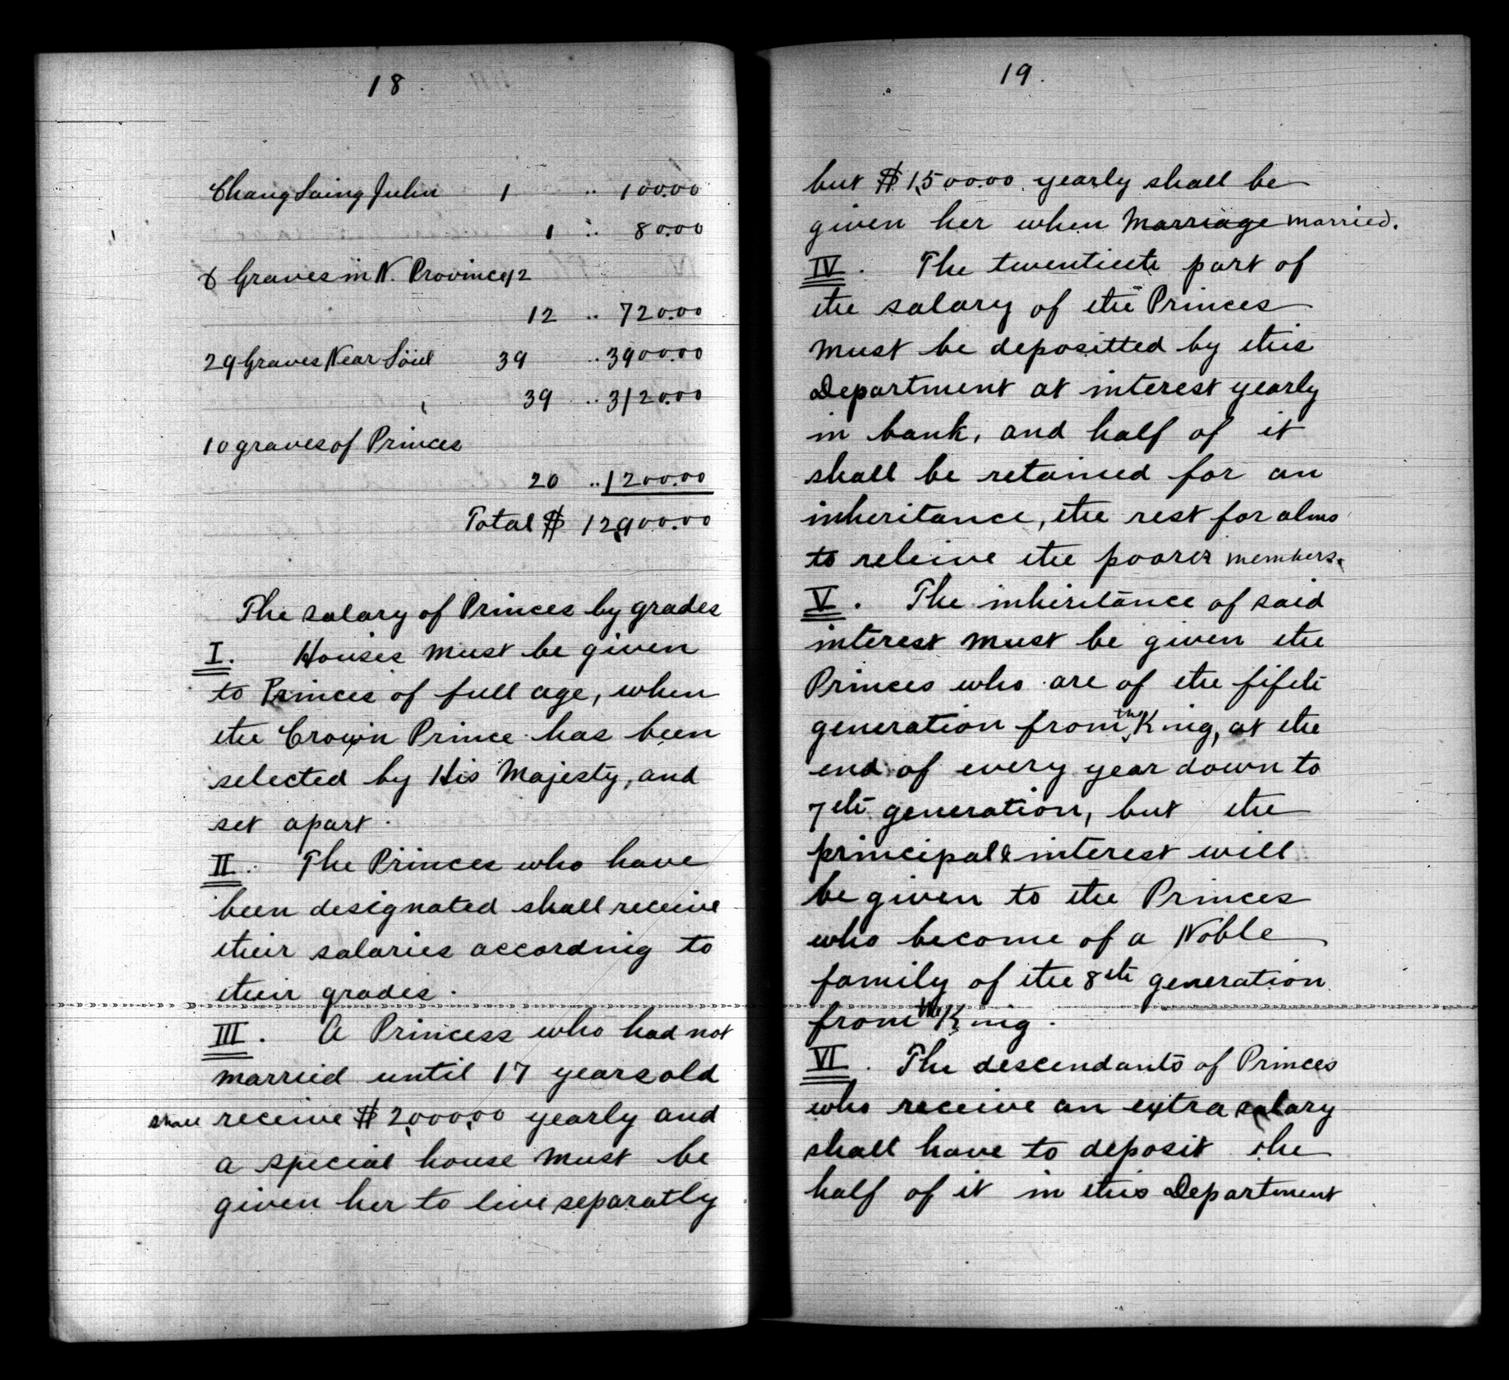 18.
Chang Saing Julin 1 .. 100.00
1 .. 80.00
8 Graves in N. Province 12
12 .. 720.00
29 Graves Near Söul 39 .. 3900.00
39 .. 3120.00
10 graves of Princes
20 .. 1200.00
Total $ 12,900.00
The salary of Princes by grades
I. Houses must be given
to Princes of full age, when
the Crown Prince has been
selected by His Majesty, and
set apart.
II. The Princes who have
been designated shall receive
their salaries according to
their grades.
III. A Princess who had not
married until 17 years old
shall receive $ 2,000.00 yearly and
a special house must be
given her to live separatly
19.
but $ 1,500.00 yearly shall be
given her when Marriage married.
IV. The twentieth part of
the salary of the Princes
must be depositted by this
Department at interest yearly
in bank, and half of it
shall be retained for an
inheritance, the rest for alms
to releive the poorer members.
V. The inheritance of said
interest must be given the
Princes who are of the fifth
generation from the King, at the
end of every year down to
7th generation, but the
principal & interest will
be given to the Princes
who become of a Noble
family of the 8th generation
from the King.
VI. The descendants of Princes
who receive an extra salary
shall have to deposit the
half of it in this Department